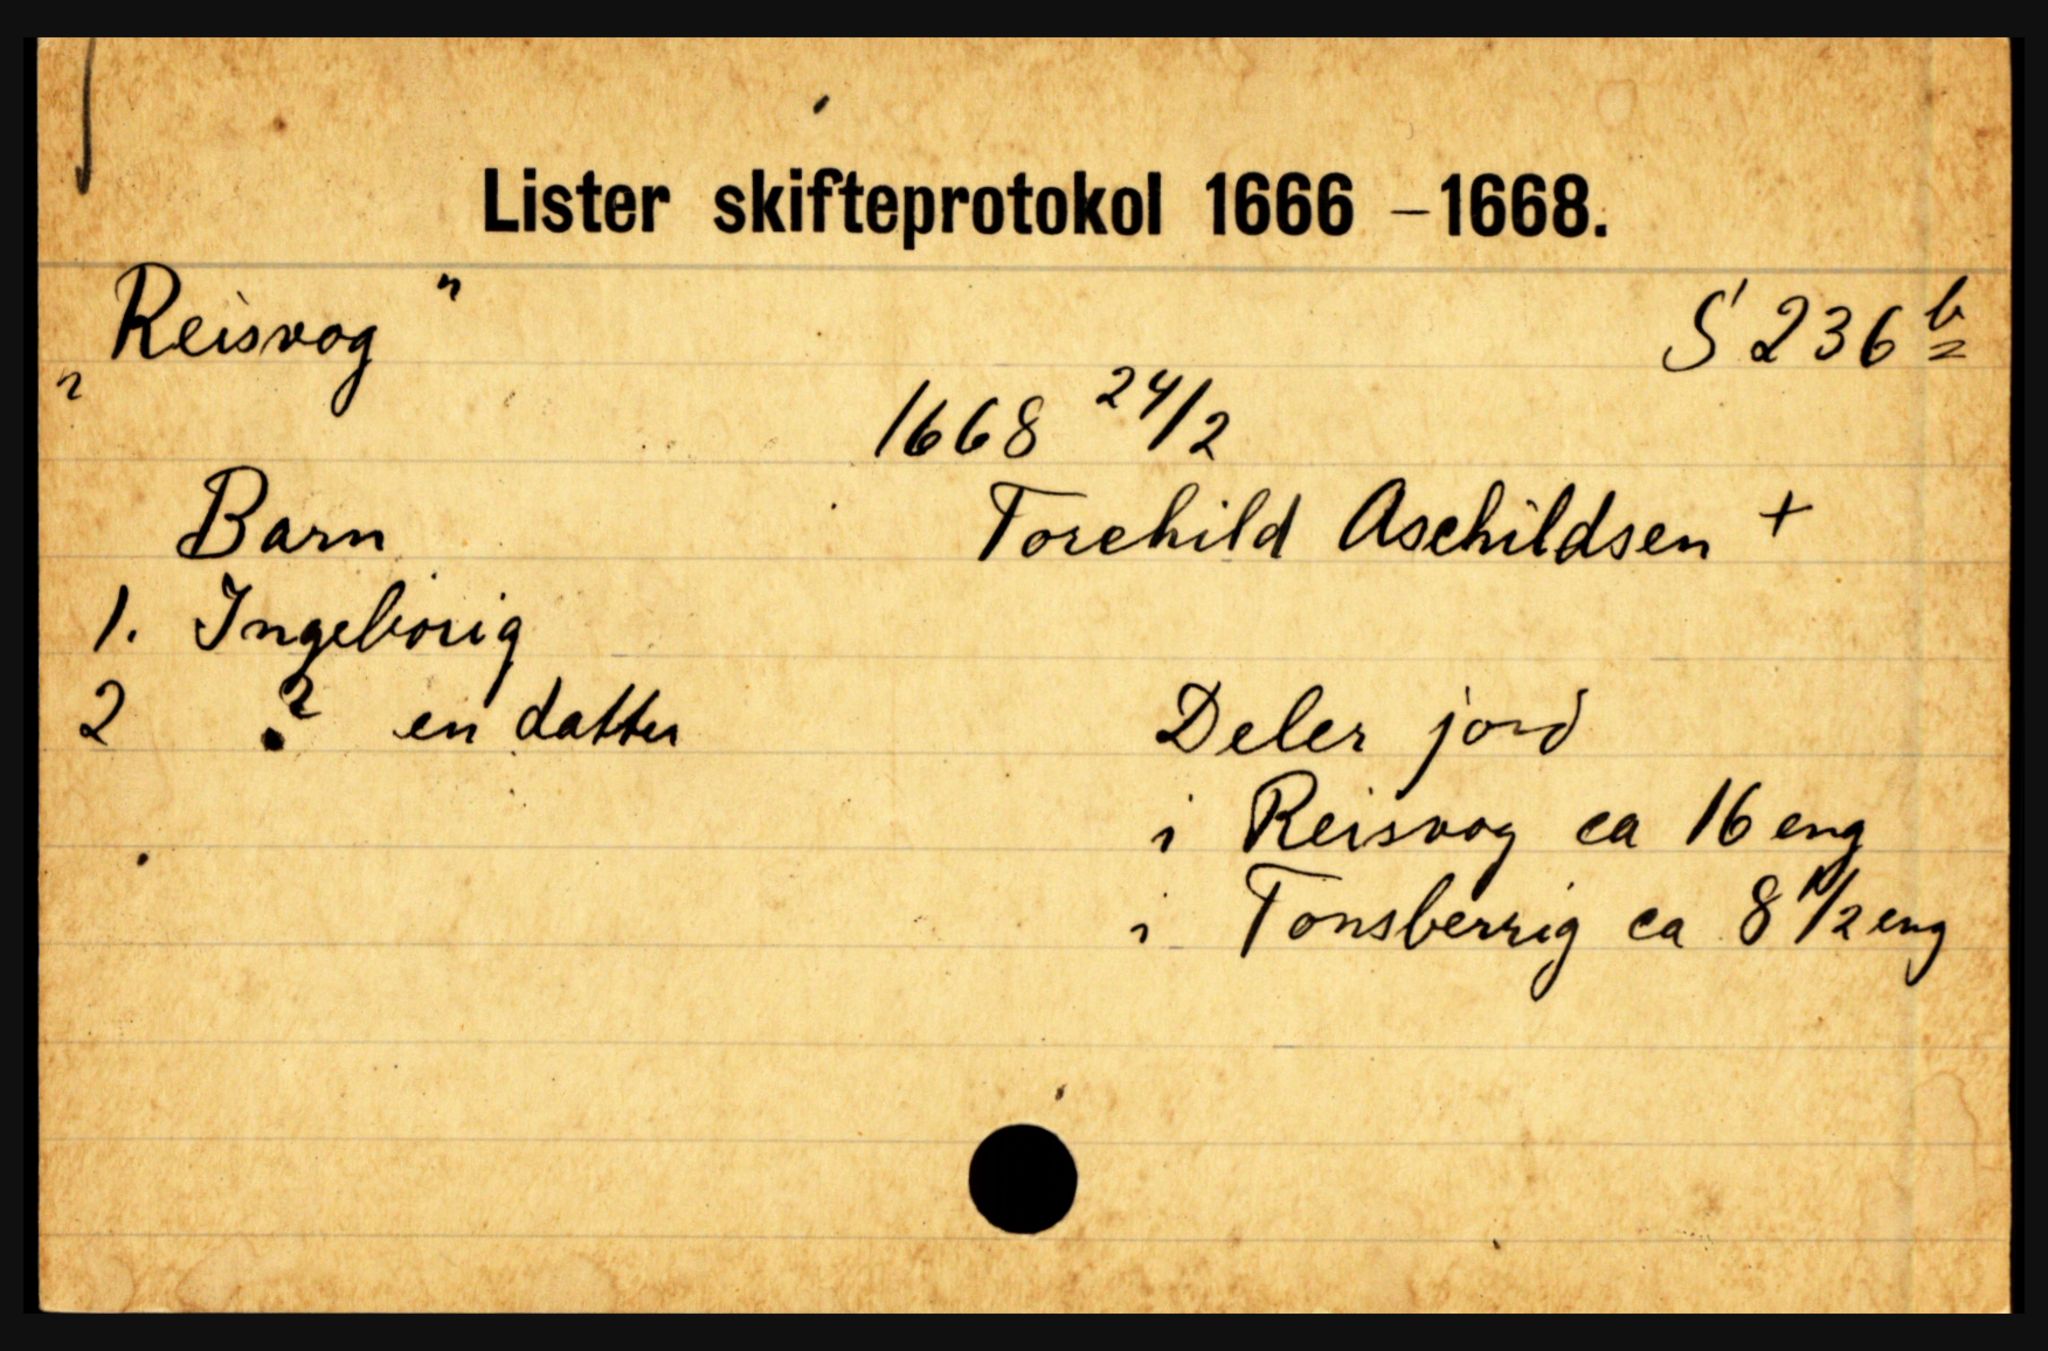 Lister skifteprotokol 1666 – 1668.
„Reisvog" S 236 b
1668 24/2
Barn Torchild Aschildsen +
1. Ingeborrig
2 ? en datter Deler jord
i Reisvog ca 16 eng
i Tonsberrig ca 8 1/2 eng